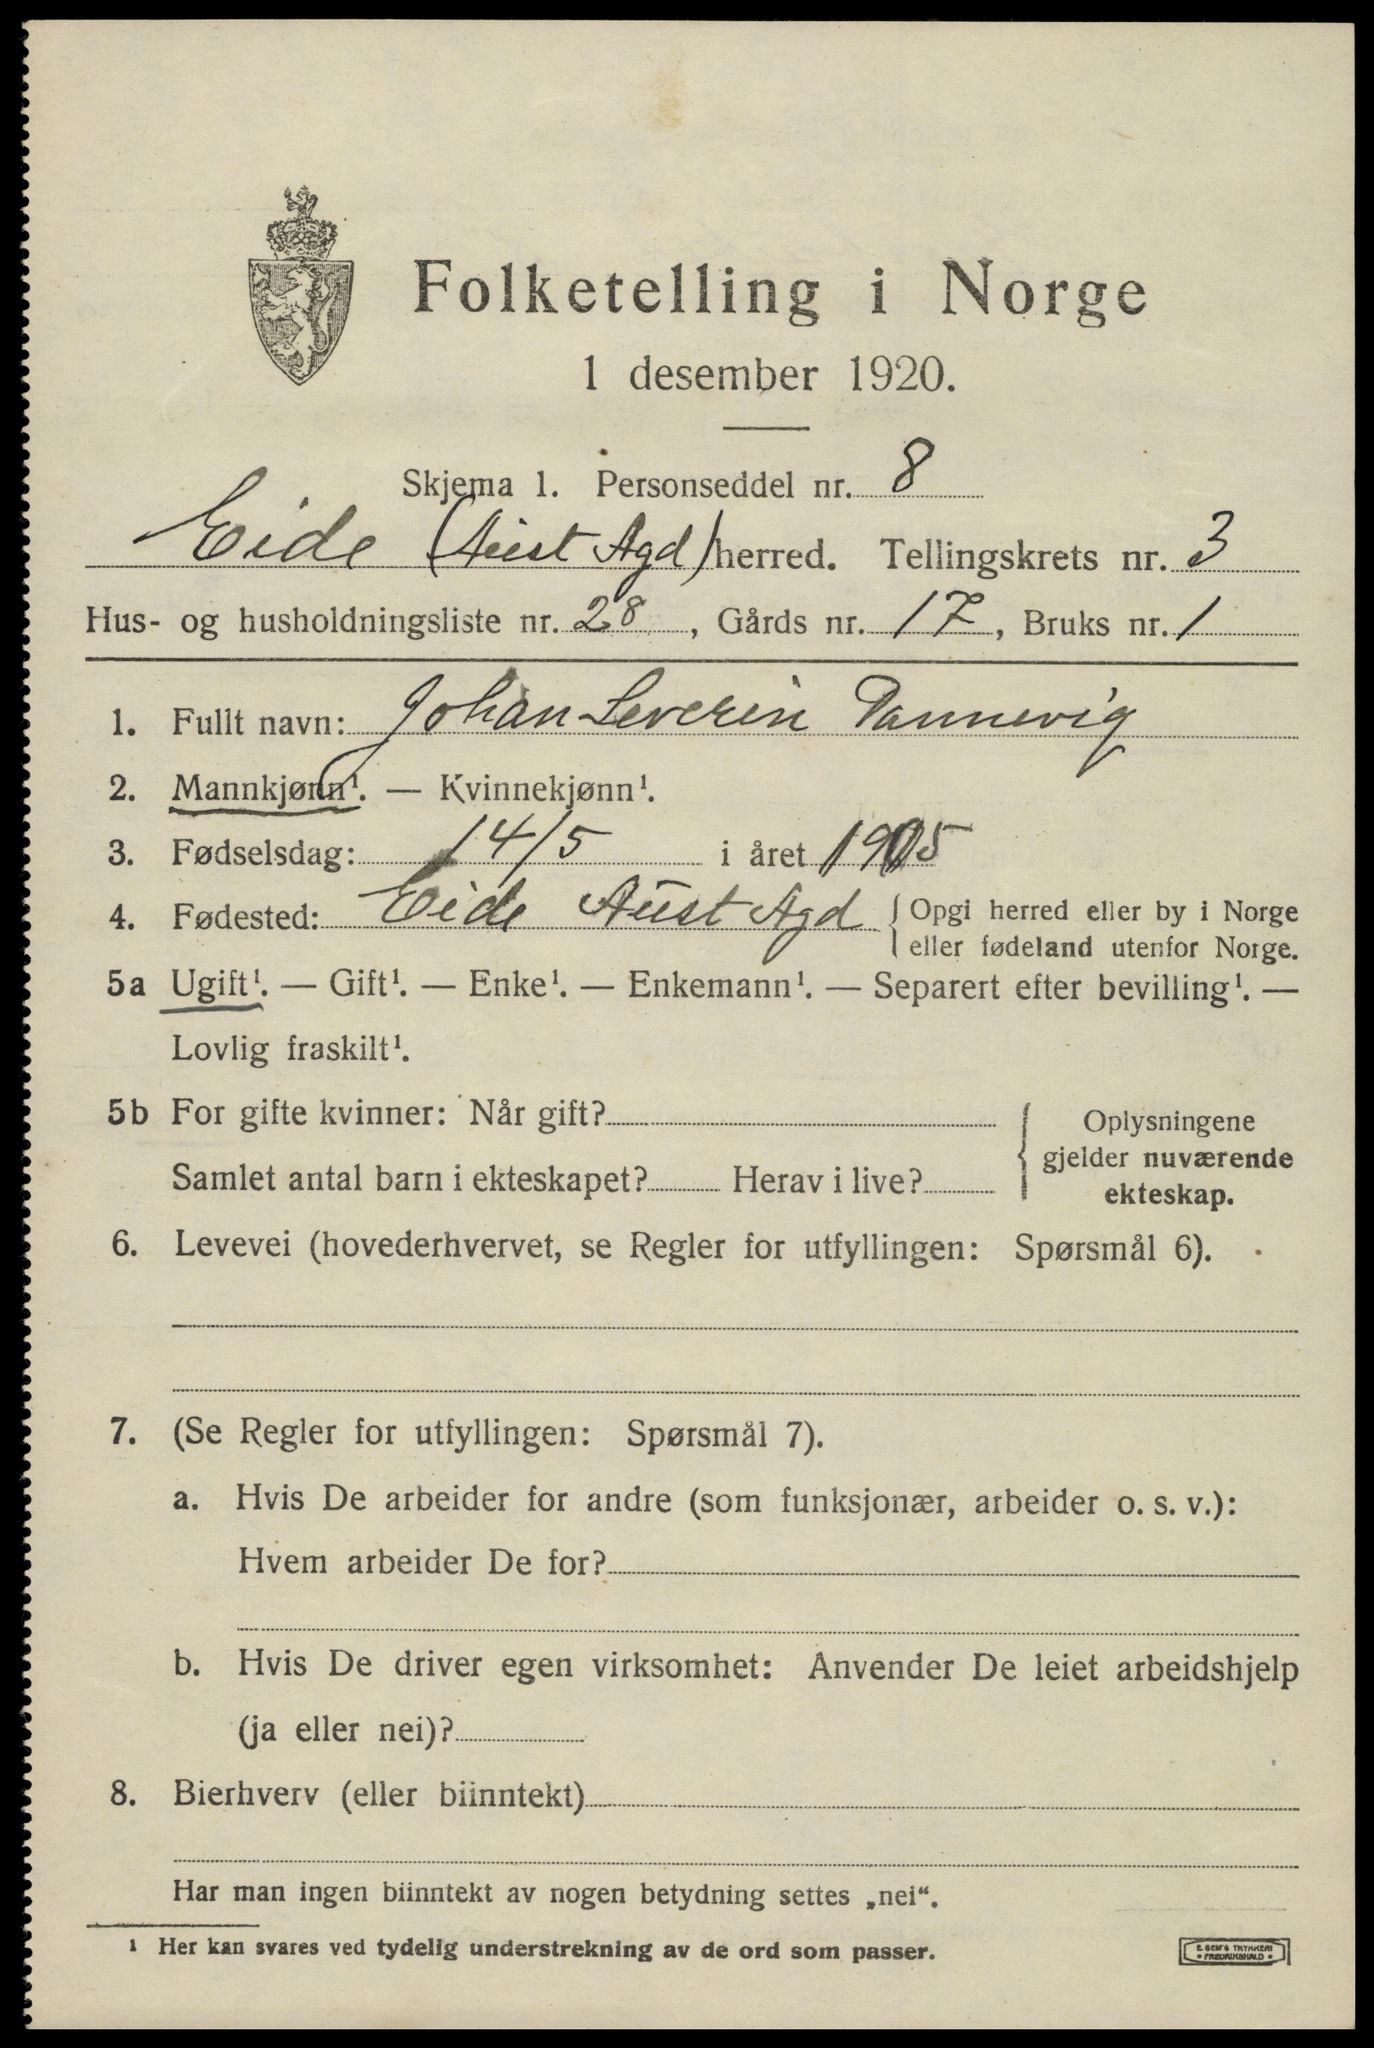 Folketelling i Norge
1 desember 1920.
Skjema 1. Personseddel nr. 8
Eide (Aust Agd) herred. Tellingskrets nr. 3
Hus- og husholdningsliste nr. 28, Gårds nr. 17, Bruks nr. 1
1. Fullt navn: Johan Severin Dannevig
2. Mannkjønn¹. — Kvinnekjønn¹.
3. Fødselsdag: 14/5 i året 1905
4. Fødested: Eide Aust Agd { Opgi herred eller by i Norge
eller fødeland utenfor Norge.
5a Ugift¹. — Gift¹. — Enke¹. — Enkemann¹. — Separert efter bevilling¹. —
Lovlig fraskilt¹.
5b For gifte kvinner: Når gift? { Oplysningene
gjelder nuværende
Samlet antal barn i ekteskapet? Herav i live?
ekteskap.
6. Levevei (hovederhvervet, se Regler for utfyllingen: Spørsmål 6).
7. (Se Regler for utfyllingen: Spørsmål 7).
a. Hvis De arbeider for andre (som funksjonær, arbeider o. s. v.):
Hvem arbeider De for?
b. Hvis De driver egen virksomhet: Anvender De leiet arbeidshjelp
(ja eller nei)?
8. Bierhverv (eller biinntekt)
Har man ingen biinntekt av nogen betydning settes „nei“.
¹ Her kan svares ved tydelig understrekning av de ord som passer.
E. SEM'S TRYKKERI
• FREDRIKSHALD •